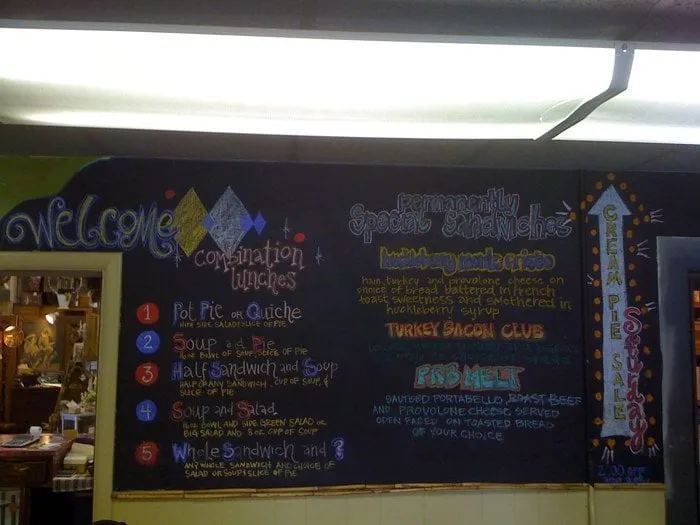 Welcome
combination
lunches
1 Pot Pie or Quiche
with side salad/slice of pie
2 Soup and Pie
16oz bowl of soup, slice of pie
3 Half Sandwich and Soup
half of any sandwich, cup of soup, &
slice of pie
4 Soup and Salad
16oz bowl and side green salad or
big salad and 8oz cup of soup
5 Whole Sandwich and ?
any whole sandwich and choice of
salad or soup/slice of pie
permanently
Special Sandwiches
huckleberry monte cristo
ham, turkey and provolone cheese on
choice of bread battered in french
toast sweetness and smothered in
huckleberry syrup
TURKEY BACON CLUB
PRB MELT
SAUTEED PORTABELLO, ROAST BEEF
AND PROVOLONE CHEESE SERVED
OPEN FACED ON TOASTED BREAD
OF YOUR CHOICE
CREAM PIE SALE
2.00 OFF